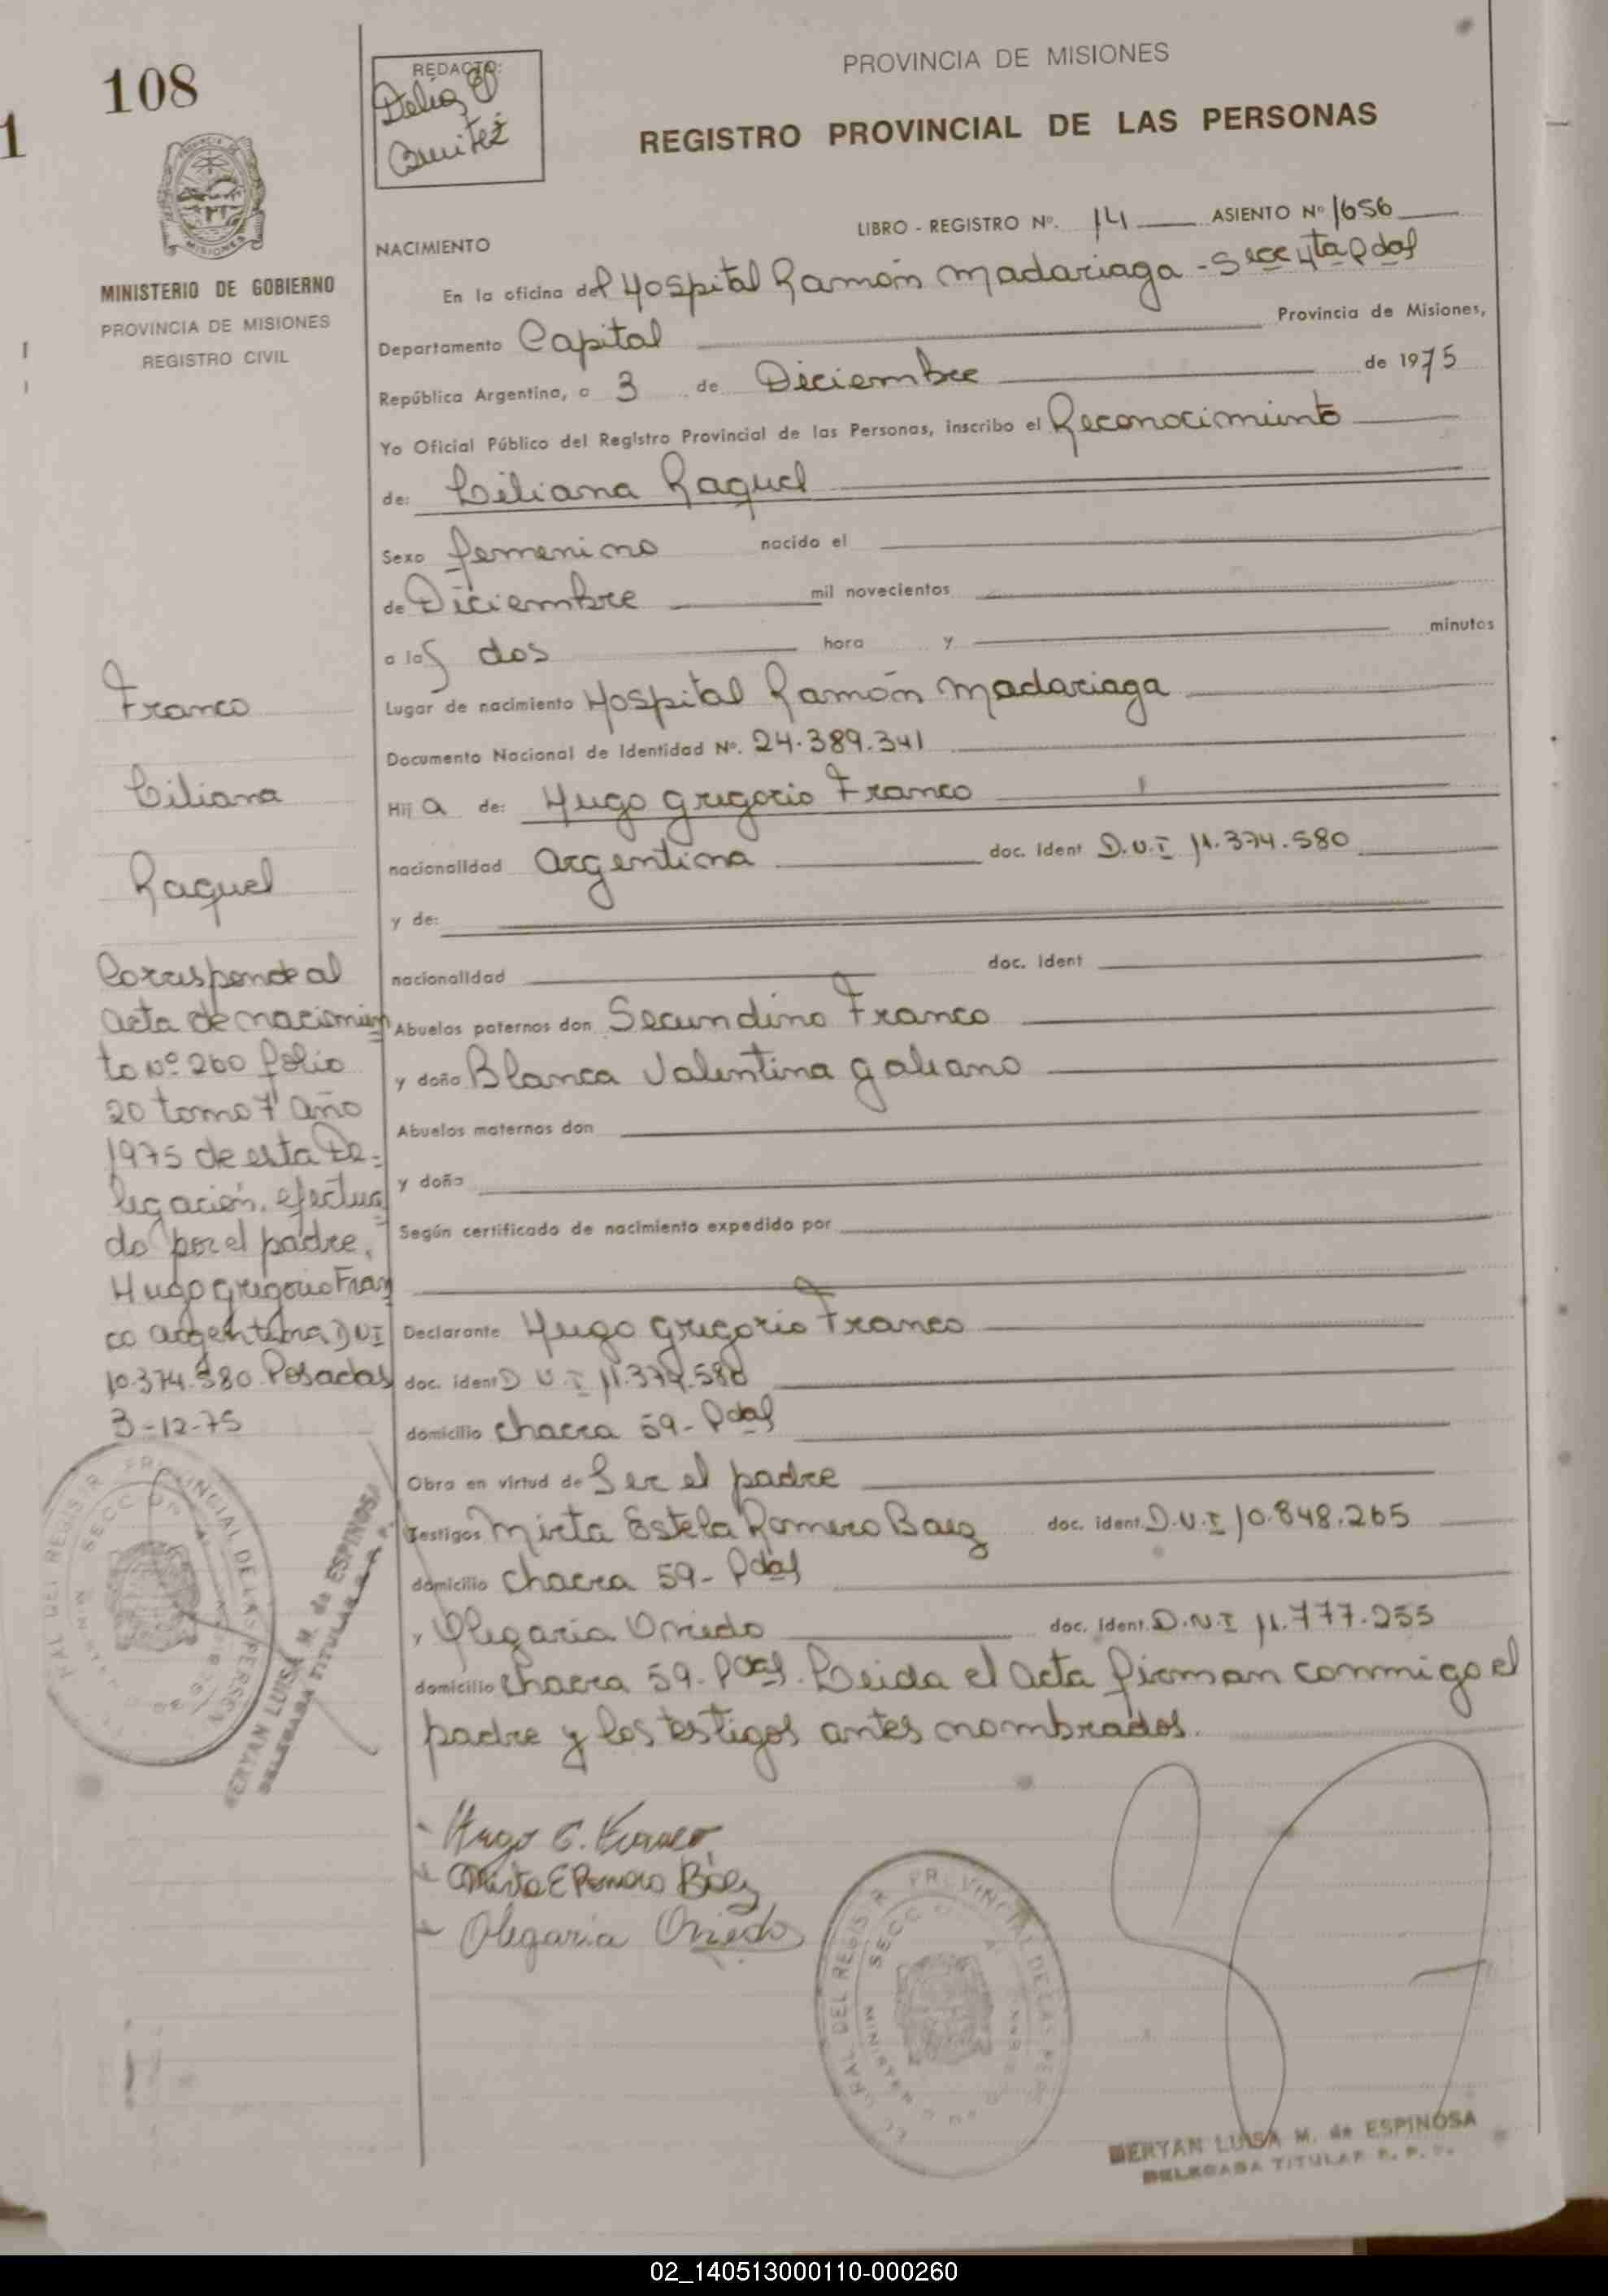 108
1
REDACTO:
Delia E
Benitez
PROVINCIA DE MISIONES
REGISTRO PROVINCIAL DE LAS PERSONAS
MINISTERIO DE GOBIERNO
PROVINCIA DE MISIONES
REGISTRO CIVIL
LIBRO - REGISTRO Nº. 14 ASIENTO Nº 1656
NACIMIENTO
En la oficina del Hospital Ramón Madariaga - Secc 4ta Pdas
Departamento Capital Provincia de Misiones,
República Argentina, a 3 de Diciembre de 1975
Yo Oficial Público del Registro Provincial de las Personas, inscribo el Reconocimiento
de: Liliana Raquel
Sexo femenino nacido el
de Diciembre mil novecientos
a las dos hora y minutos
Lugar de nacimiento Hospital Ramón Madariaga
Documento Nacional de Identidad Nº. 24.389.341
Hij a de: Hugo Gregorio Franco
nacionalidad Argentina doc. ident D.N.I 11.374.580
y de:
nacionalidad doc. ident
Abuelos paternos don Secundino Franco
y doña Blanca Valentina Galeano
Abuelos maternos don
y doña
Según certificado de nacimiento expedido por
Declarante Hugo Gregorio Franco
doc. ident D N I 11.374.580
domicilio chacra 59 - Pdas
Obra en virtud de Ser el padre
Testigos Mirta Estela Romero Baez doc. ident. D.N.I 10.848.265
domicilio chacra 59 - Pdas
y Olegaria Oviedo doc. ident. D.N.I 11.777.255
domicilio chacra 59 - Pdas. Leida el acta firman conmigo el
padre y los testigos antes nombrados.
Franco
Liliana
Raquel
Corresponde al
acta de nacimien
to Nº 260 folio
20 tomo 7 año
1975 de esta De=
legación, efectua
do por el padre,
Hugo Gregorio Fran
co argentino DNI
10.374.580 Posadas
3-12-75
BERYAN LUISA M. de ESPINOSA
DELEGADA TITULAR R. P. P.
Hugo G. Franco
Mirta E Romero Báez
Olegaria Oviedo
BERYAN LUISA M. de ESPINOSA
DELEGADA TITULAR R. P. P.
02_140513000110-000260